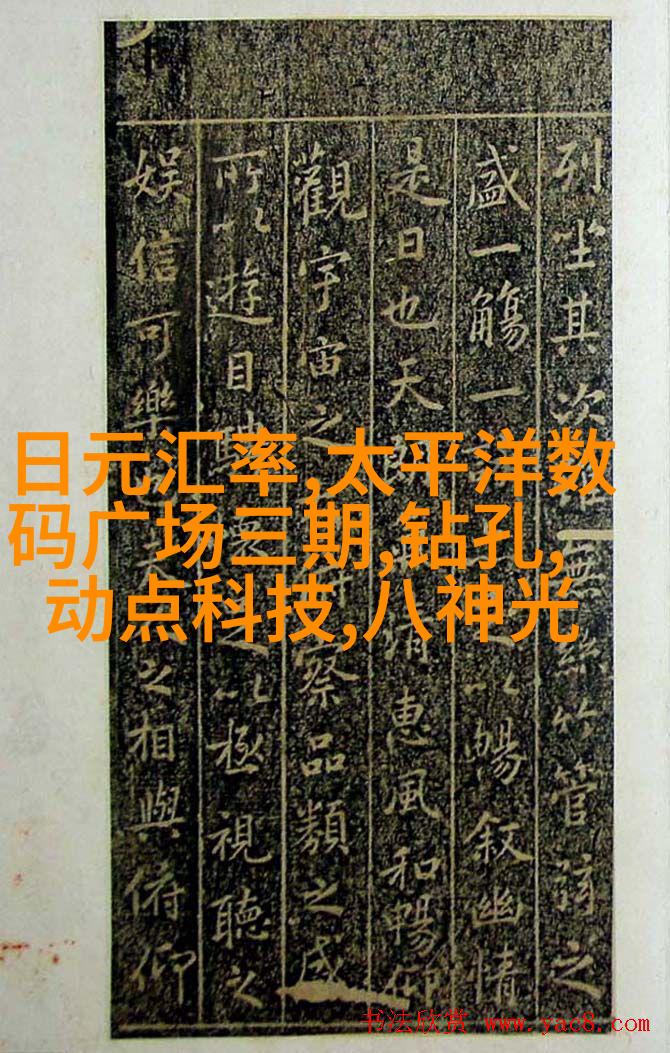 列坐其次雖無絲竹管絃之
盛一觴一以暢叙幽情
是日也天朗清惠風和暢仰
觀宇宙之察品類之盛
所以遊目騁之以極視聽之
娛信可樂夫之相與俯仰
日元汇率,太平洋数
码广场三期,钻孔,
动点科技,八神光
书法欣赏 www.yac8.com